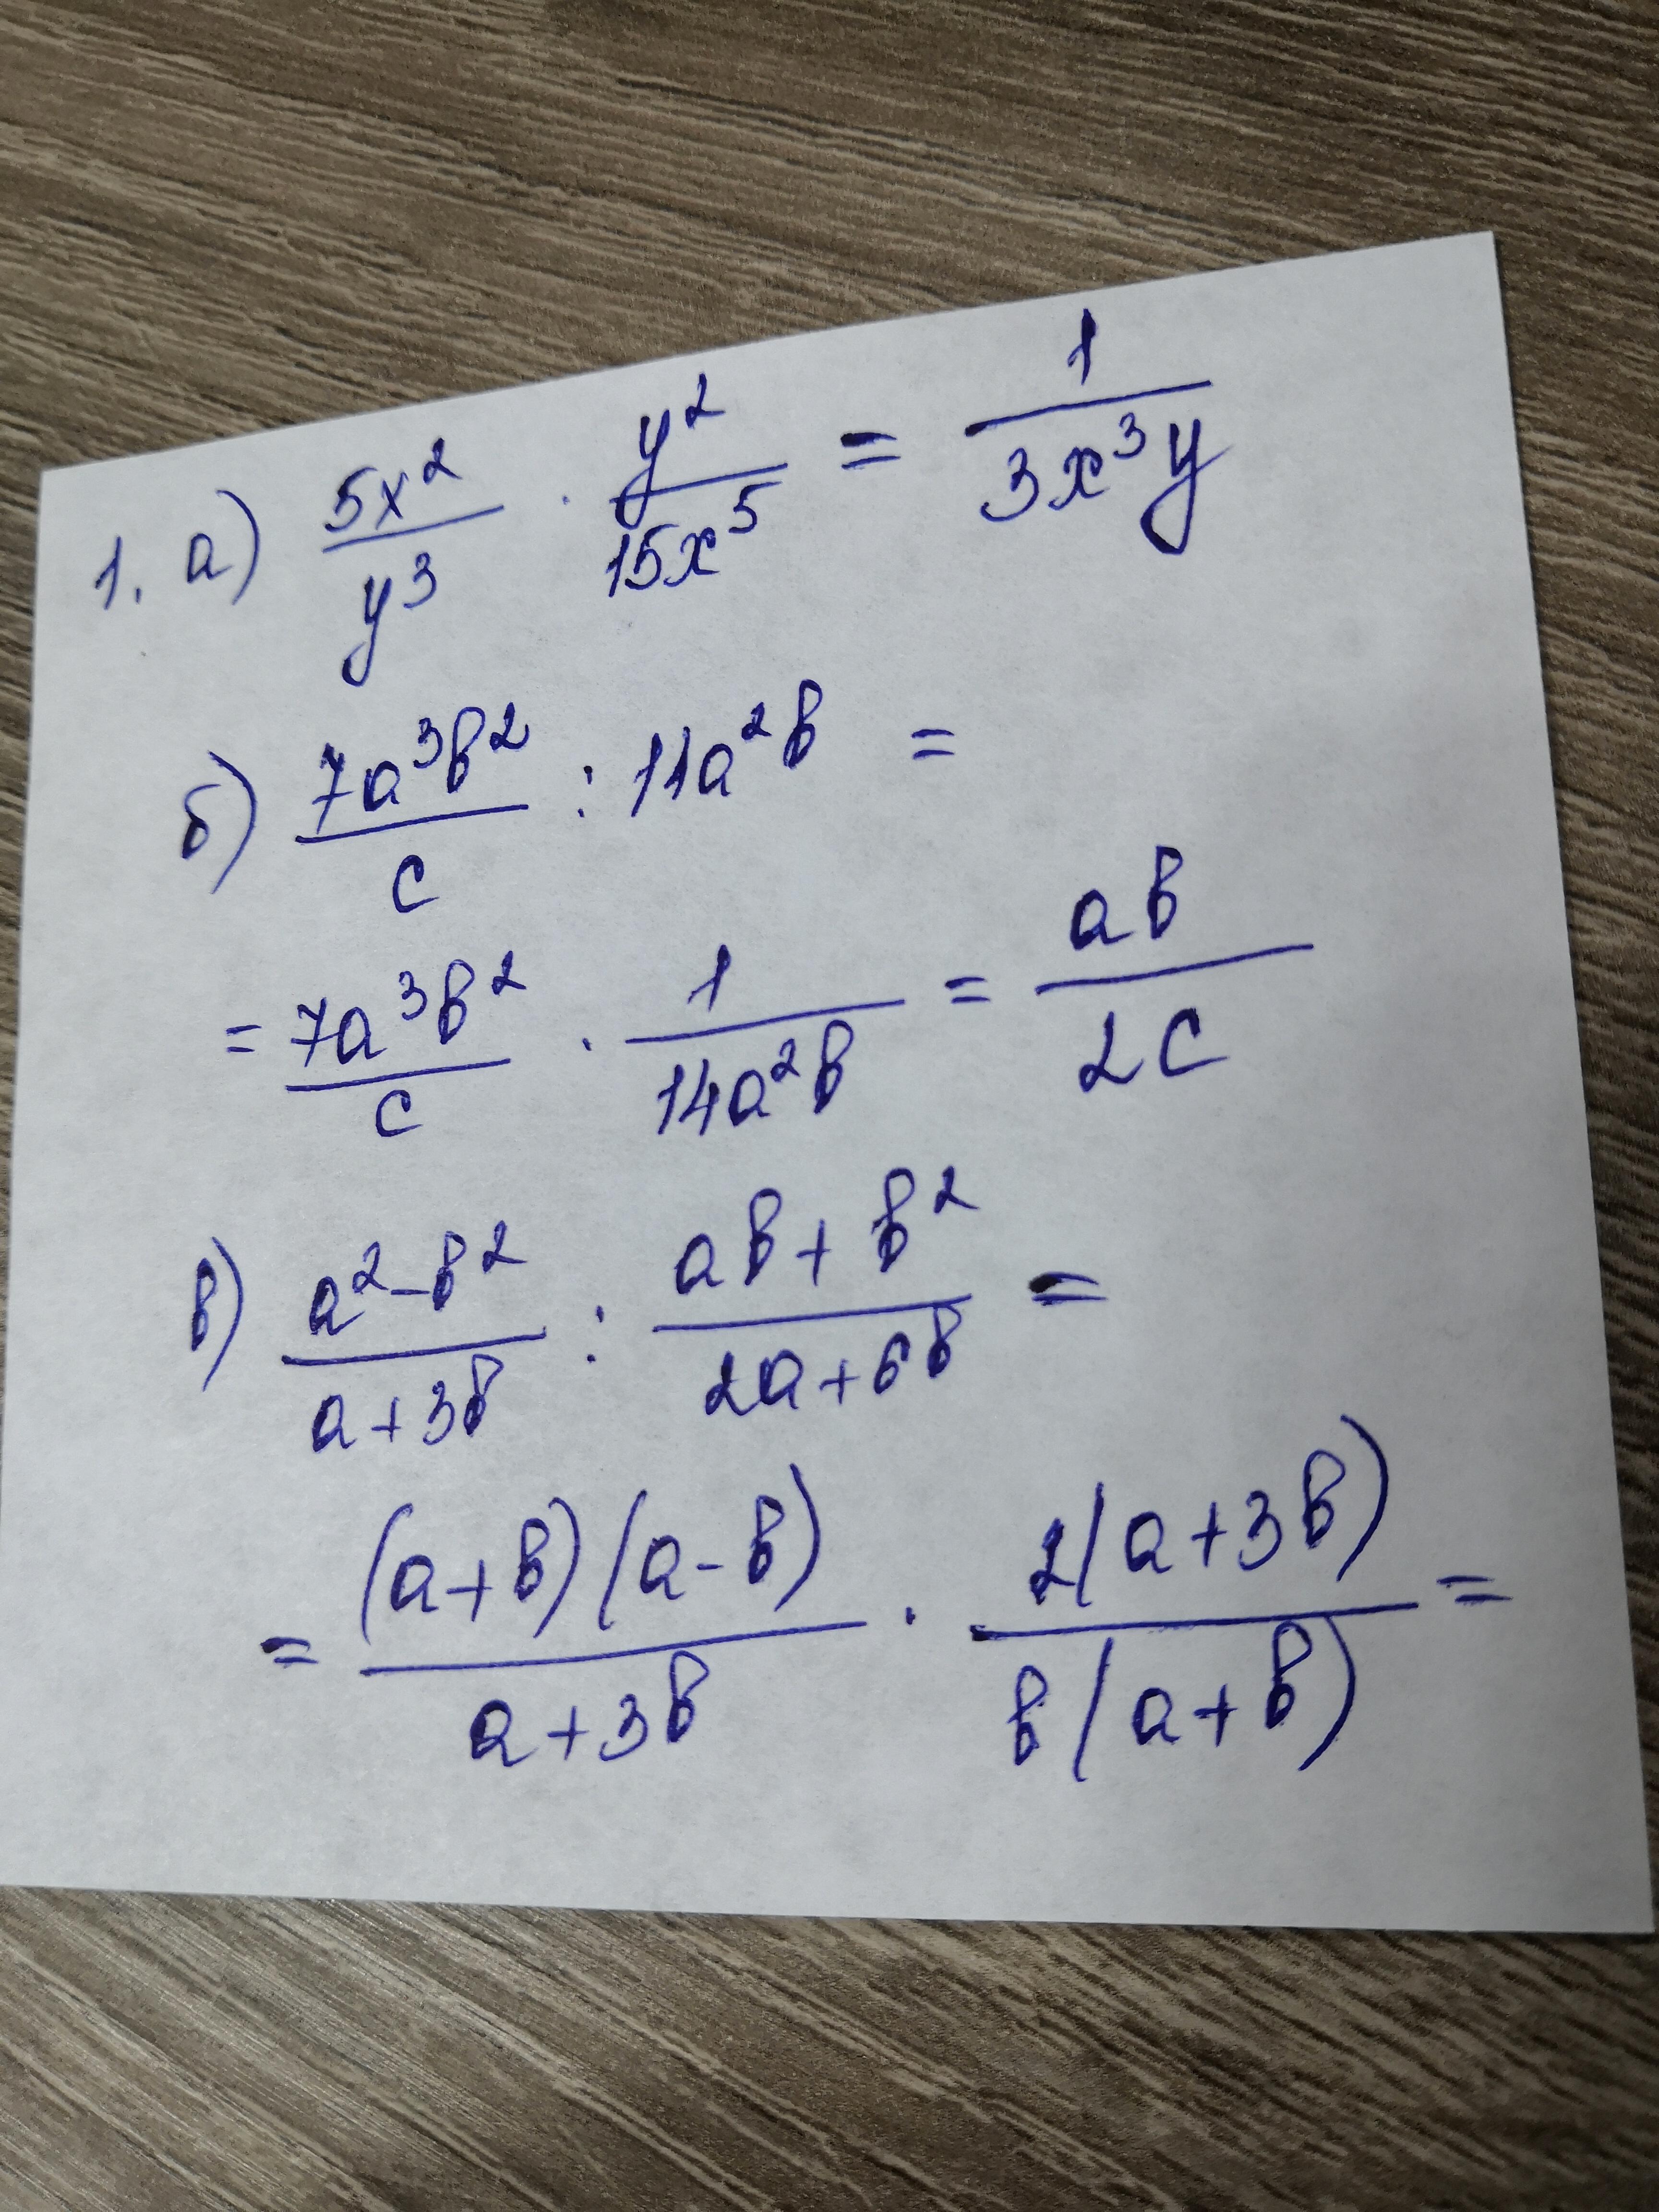 1. а) 5x²/y³ · y²/15x⁵ = 1/3x³y
б) 7a³b²/c : 14a²b =
= 7a³b²/c · 1/14a²b = ab/2c
в) a²-b²/a+3b : ab+b²/2a+6b =
= (a+b)(a-b)/a+3b · 2(a+3b)/b(a+b) =